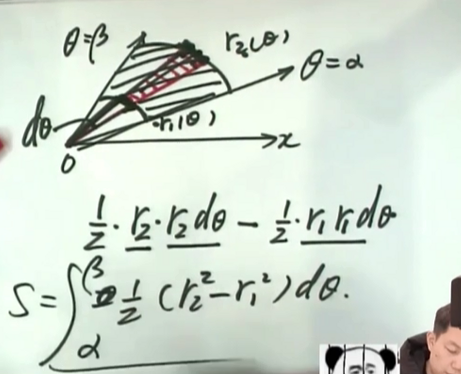 θ=β
r₂(θ)
θ=α
dθ
r₁(θ)
0
x
1/2 · r₂ · r₂dθ − 1/2 · r₁ r₁dθ
S = ∫_α^β 1/2 (r₂² − r₁²) dθ.